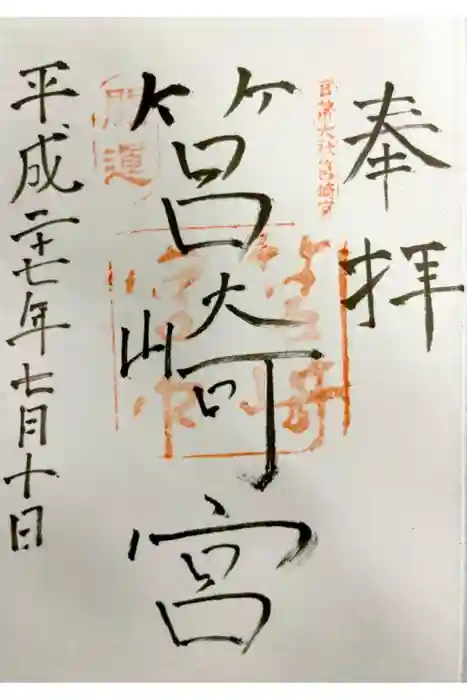 奉拝
官幣大社筥崎宮
筥崎宮
開運
平成二十七年七月十日